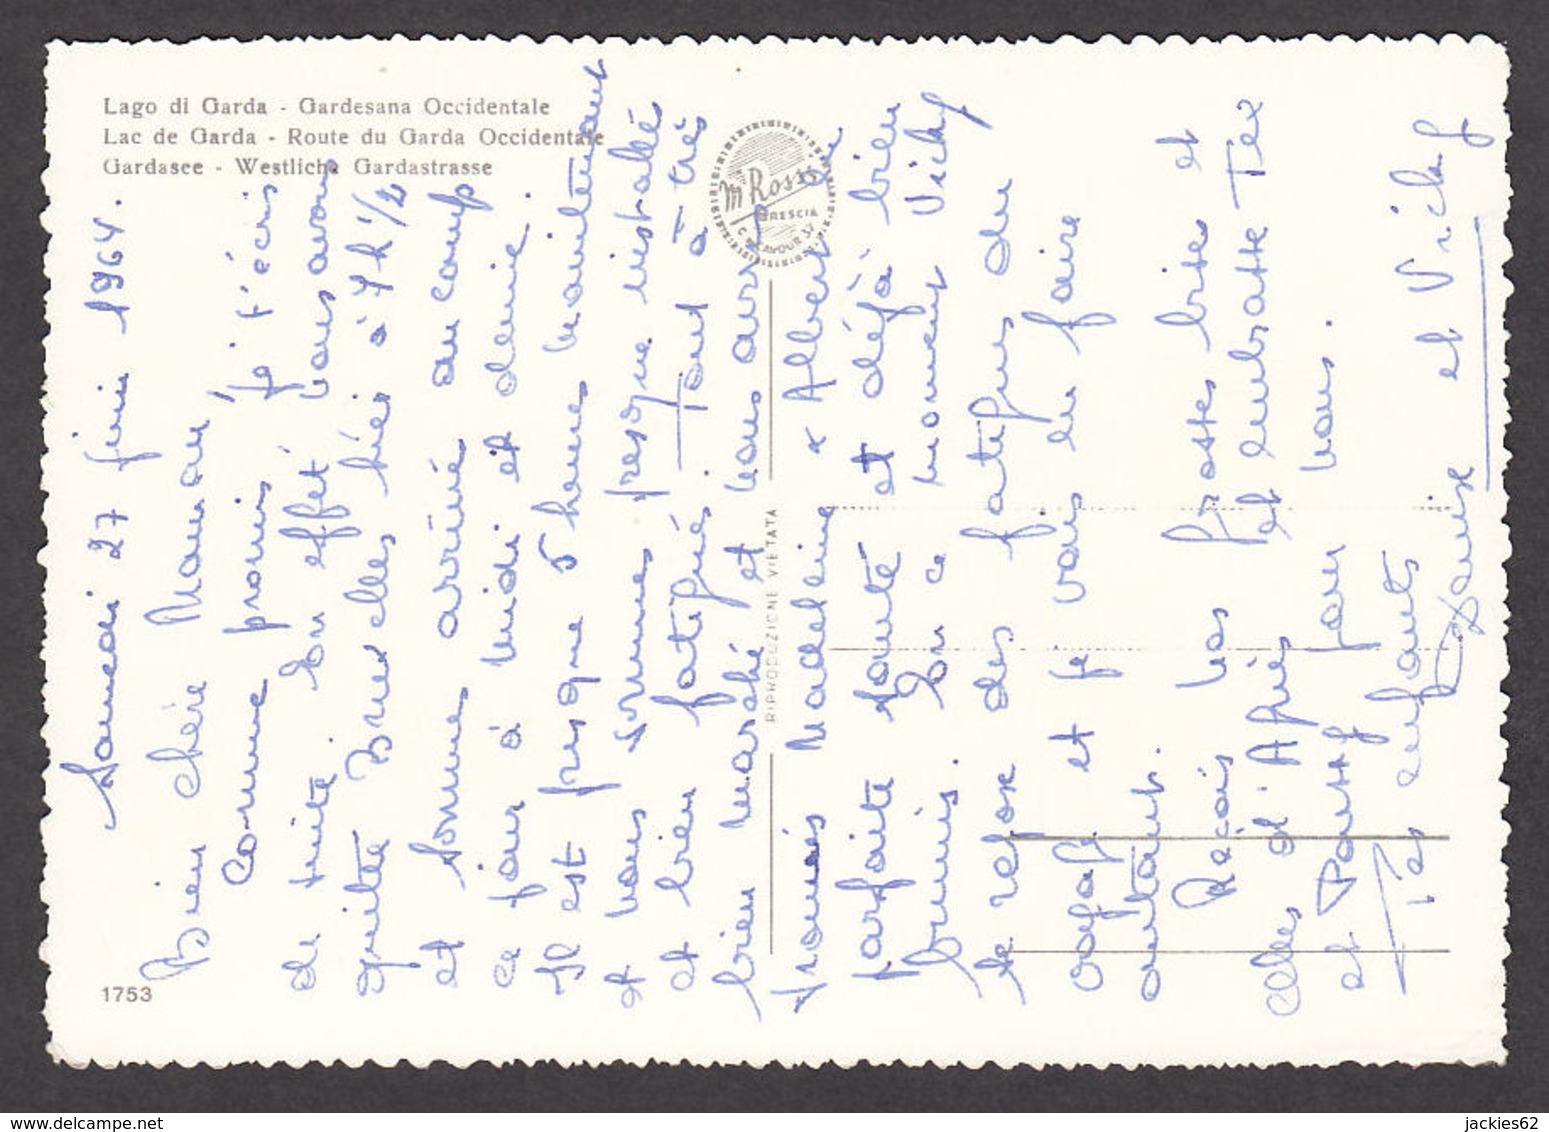 Lago di Garda - Gardesana Occidentale
Lac de Garda - Route du Garda Occidentale
Gardasee - Westliche Gardastrasse
M. Rossi
BRESCIA
C. CAVOUR 37
RIPRODUZIONE VIETATA
1753
Samedi 27 juin 1964.
Bien chère Maman,
Comme promis, je t'écris
de suite. En effet nous avons
quitté Bruxelles hier à 7h 1/2
et sommes arrivés au camp
ce jour à midi et demie.
Il est presque 5 heures maintenant
et nous sommes presque installés
et bien fatigués. Tout a très
bien marché et nous avons
trouvés Madeleine & Albert en
parfaite santé et déjà bien
brunis. En ce moment Vicky
se repose des fatigues du
voyage et je vais en faire
autant.
Reçois nos grosses bises et
celles d'Agnès et embrasse Tex
et Poussy pour nous.
Tes enfants
Louise et Vicky
jackies62